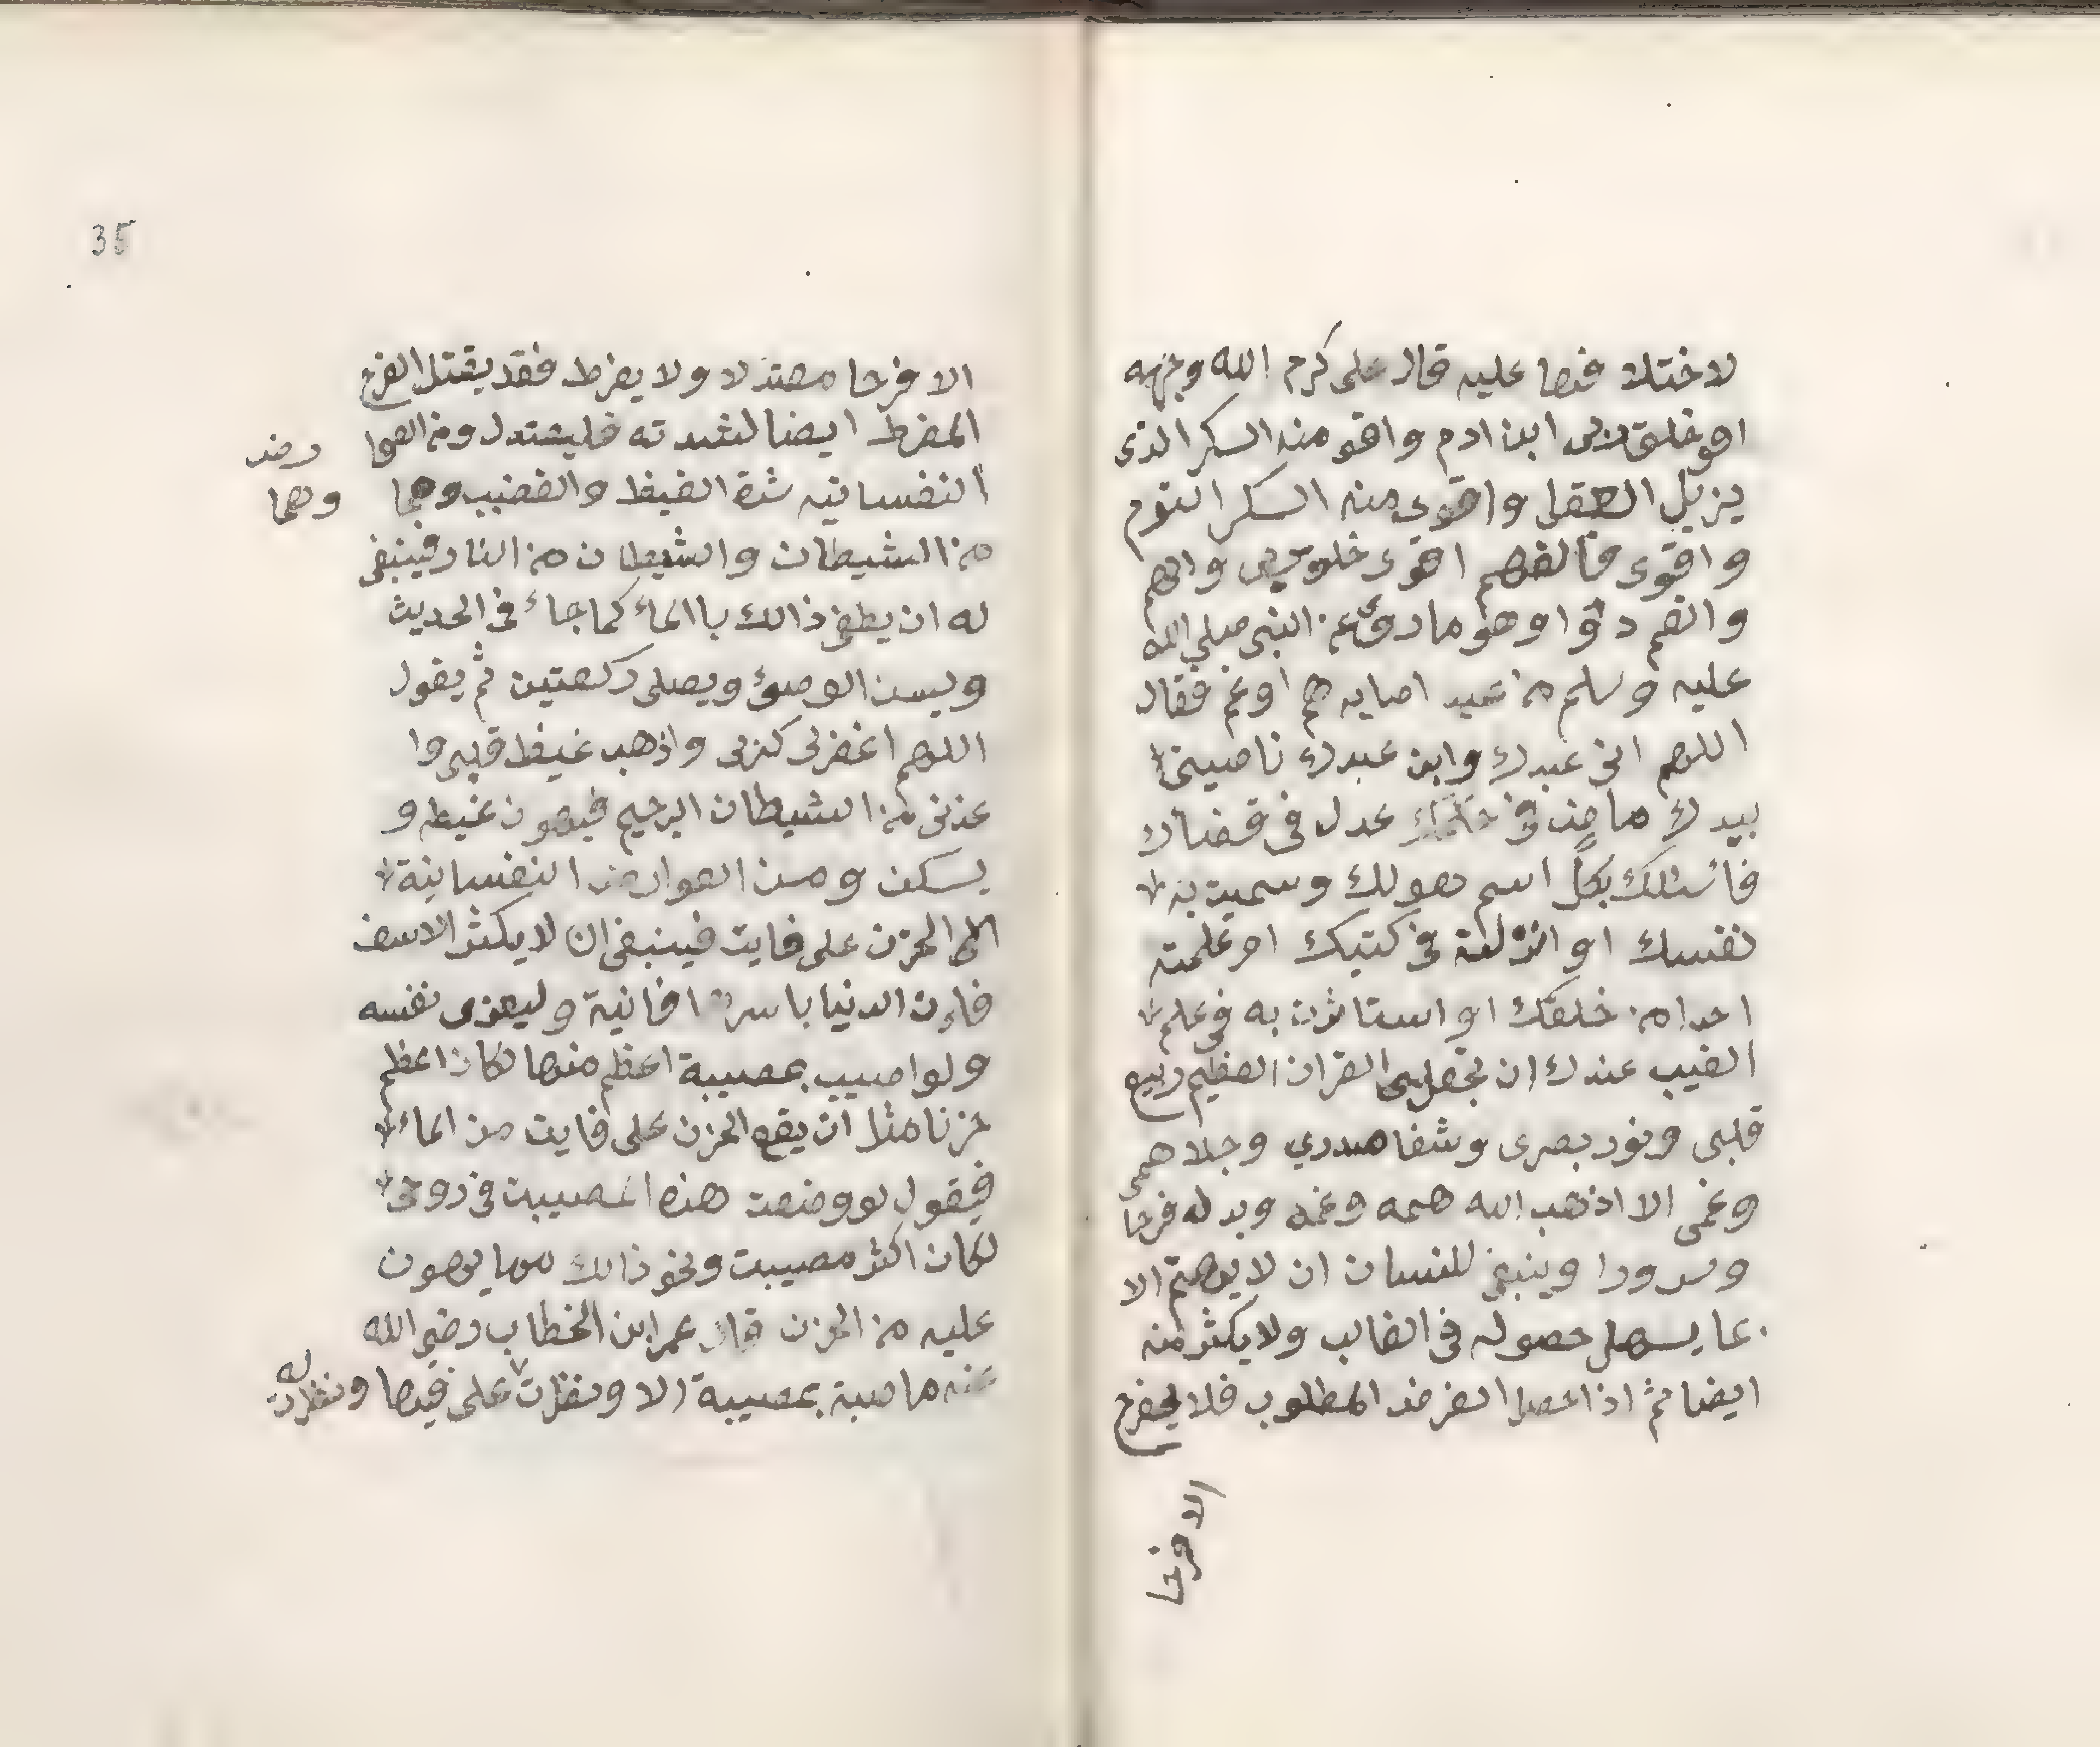 لاختلا فها عليه قال على كرم الله وجهه
اقو خلق ربى ابن ادم واقو منه السكر الذى
يزيل العقل واقوى منه السكر النوم
واقوى فالهم اقوى خلق والهم
والغم دوا وهو ما روى عن النبى صلى الله
عليه وسلم من عبد اصابه هم او غم فقال
اللهم انى عبدك وابن عبدك ناصيتى
بيدك ماض فى حكمك عدل فى قضاك
فاسئلك بكل اسم هو لك وسميت به
نفسك او انزلته فى كتبك او علمته
احدا من خلقك او استاثرت به فى علم
الغيب عندك ان تجعل القران العظيم ربيع
قلبى ونور بصرى وشفا صدري وجلا همى
وغمى الا اذهب الله همه وغمه وبدله فرحا
وسرورا وينبغى للنسان ان لا يهتم الا
بما يسهل حصوله فى الغالب ولا يكثر منه
ايضا ثم اذا حصل الغرض المطلوب فلا يفرح
الا فرحا
35
الا فرحا معتدلا ولا يفرط فقد يقتل الفرح
المفرط ايضا لشدته فليعتدل ومن العوا رض
النفسانيه شدة الغيظ والغضب وهما وهما
من الشيطان والشيطان من النار فينبغى
له ان يطفى ذالك باالماء كما جاء فى الحديث
ويسن الوضوء ويصلى ركعتين ثم يقول
اللهم اغفرلى ذنبى واذهب غيظ قلبى وا
عذنى من الشيطان الرجيم فيهون غيظه و
يسكن ومن العوارض النفسانية
الحزن على فايت فينبغى ان لا يكثر الاسف
فاءن الدنيا باسرها فانية وليعزى نفسه
ولو اصيب بمصيبة اعظم منها لكان اعظم
حزنا مثلا ان يقع الحزن على فايت من الماء
فيقول لو وضعت هذه المصيبت فى روحى
لكان اكثر مصيبت ونحو ذالك مما يهون
عليه من الحزن قال عمر ابن الخطاب رضى الله
عنه ما صبة بمصيبة الا ونظرت على فيها ونظرت له